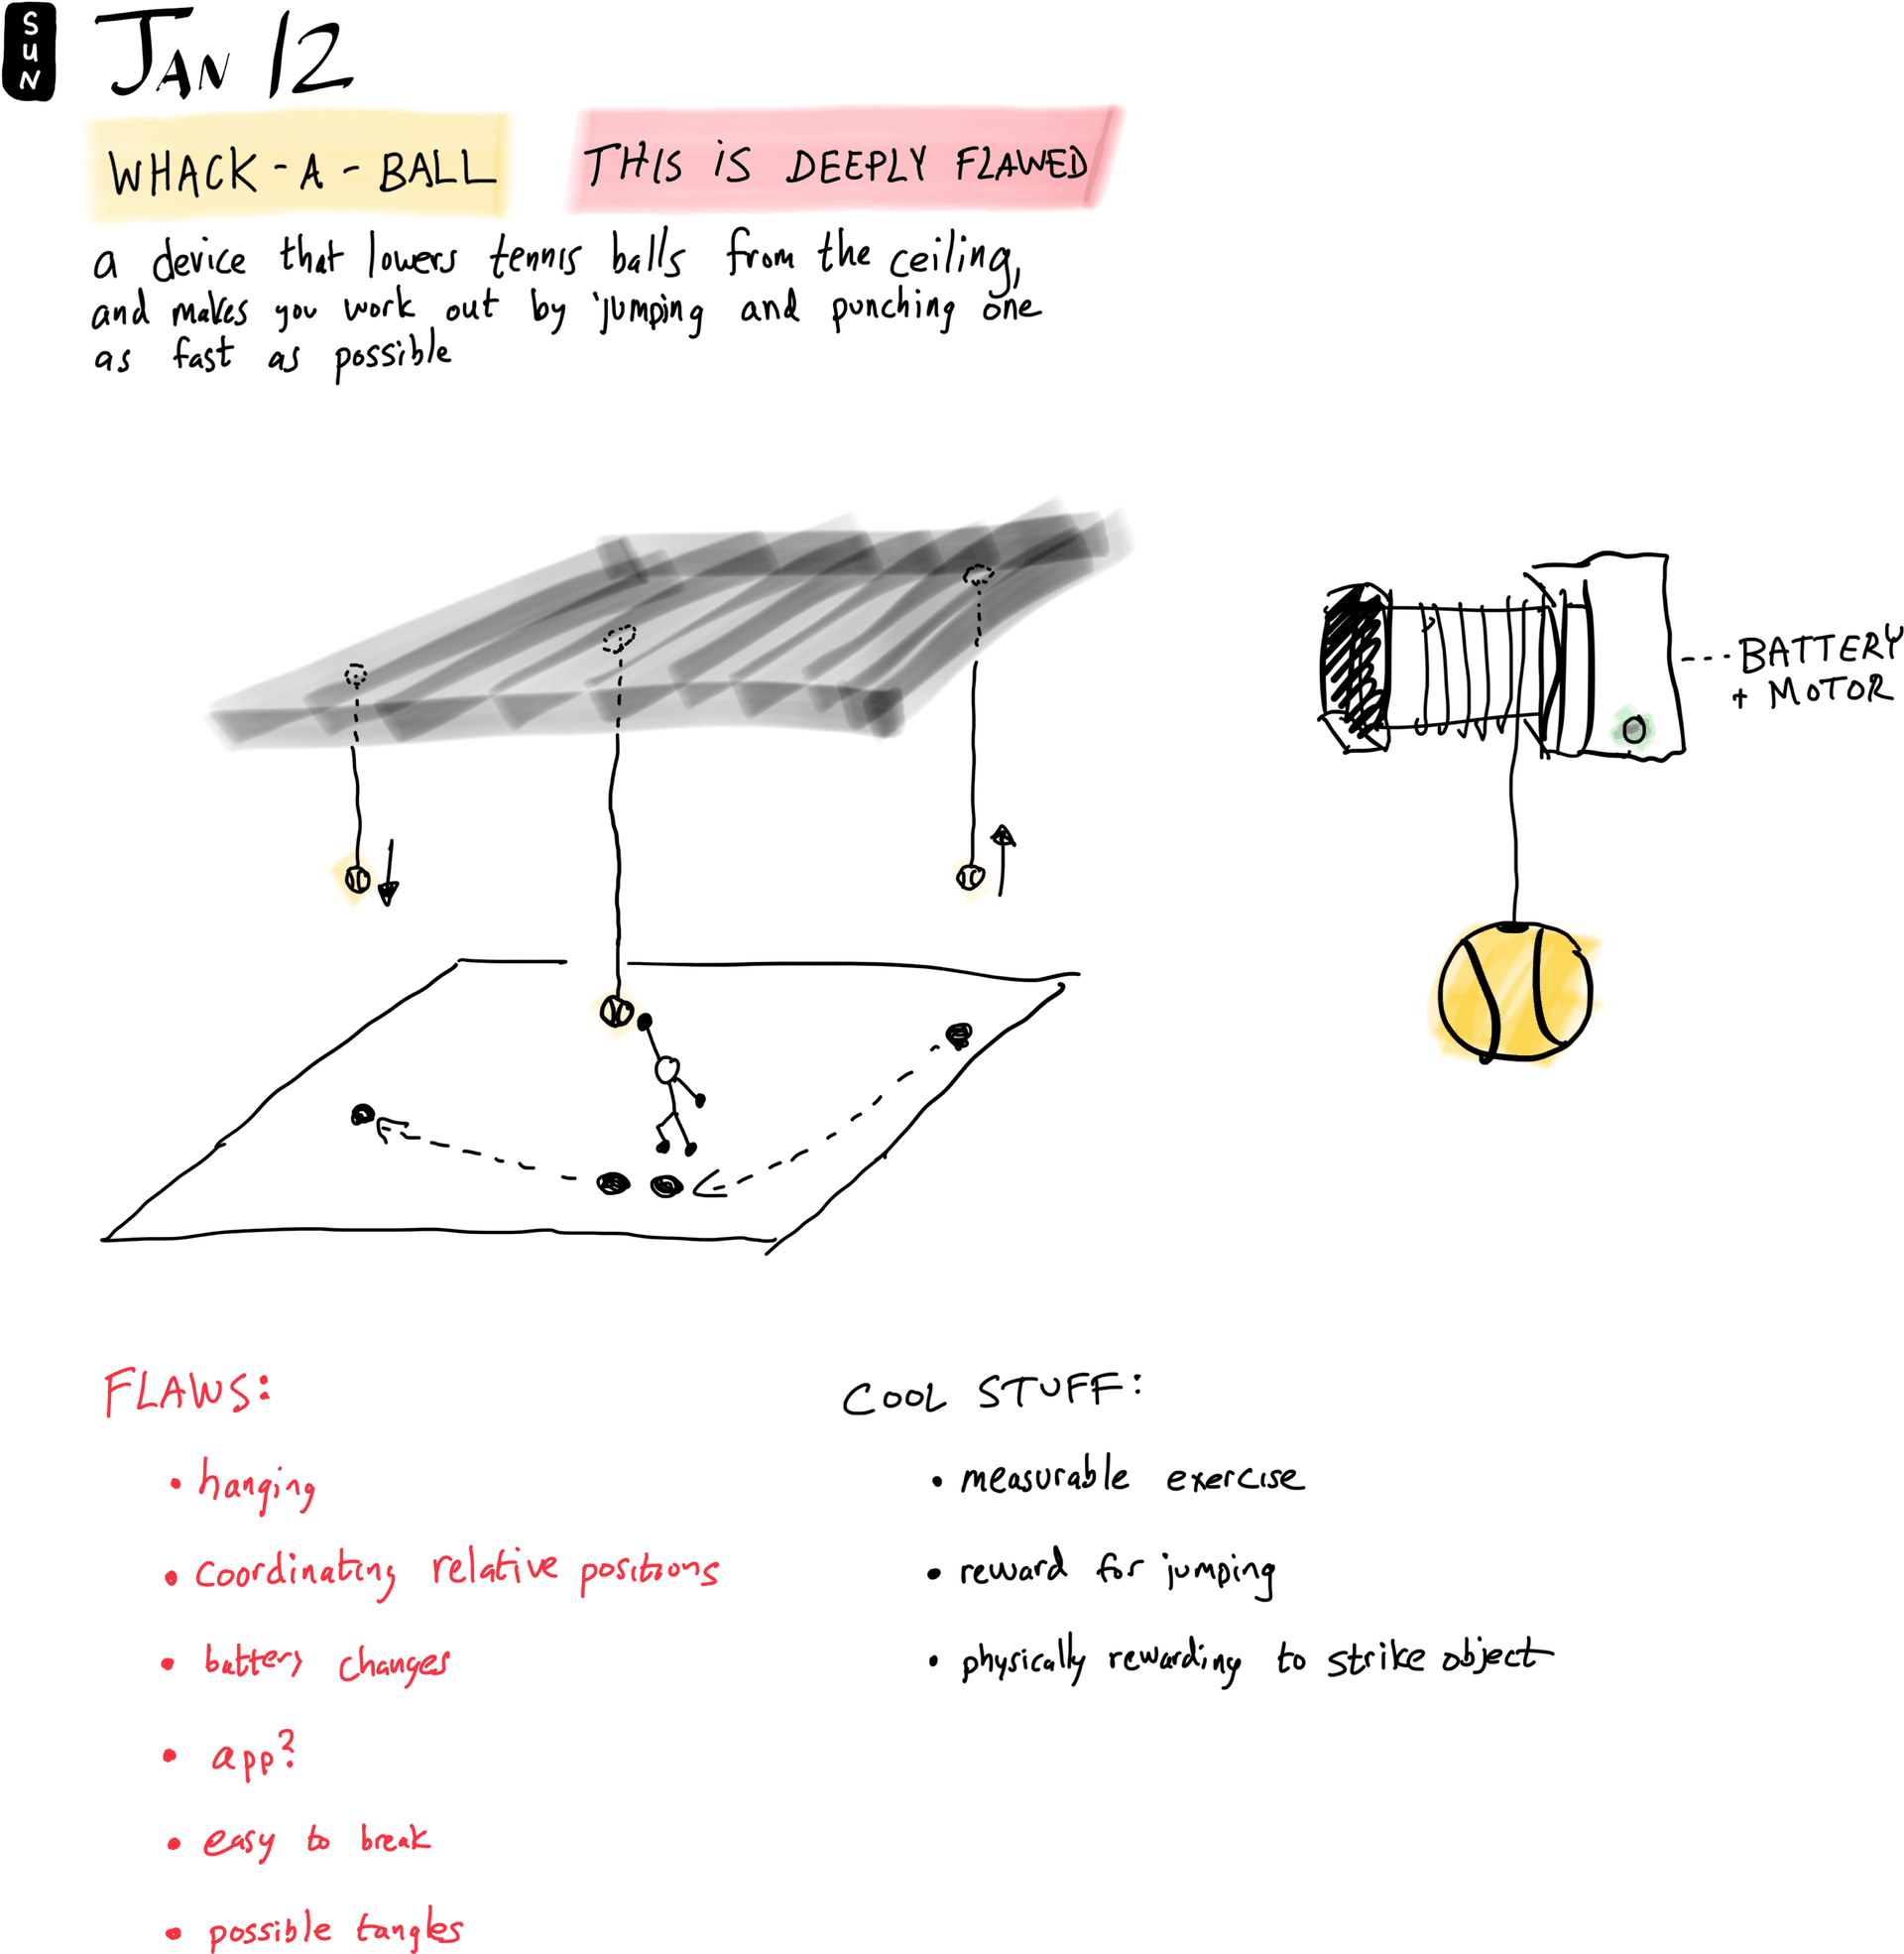 SUN
JAN 12
WHACK-A-BALL
THIS iS DEEPLY FLAWED
a device that lowers tennis balls from the ceiling,
and makes you work out by jumping and punching one
as fast as possible
BATTERY
+ MOTOR
FLAWS:
• hanging
• coordinating relative positions
• battery changes
• app?
• easy to break
• possible tangles
COOL STUFF:
• measurable exercise
• reward for jumping
• physically rewarding to strike object